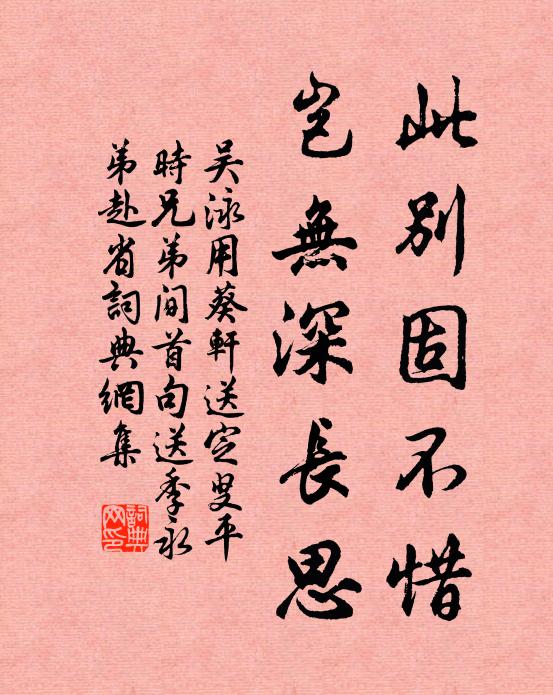 此別固不惜
豈無深長思
吳泳用葵軒送定叟平
時兄弟間首句送季永
弟赴省詞典網集
詞典網印